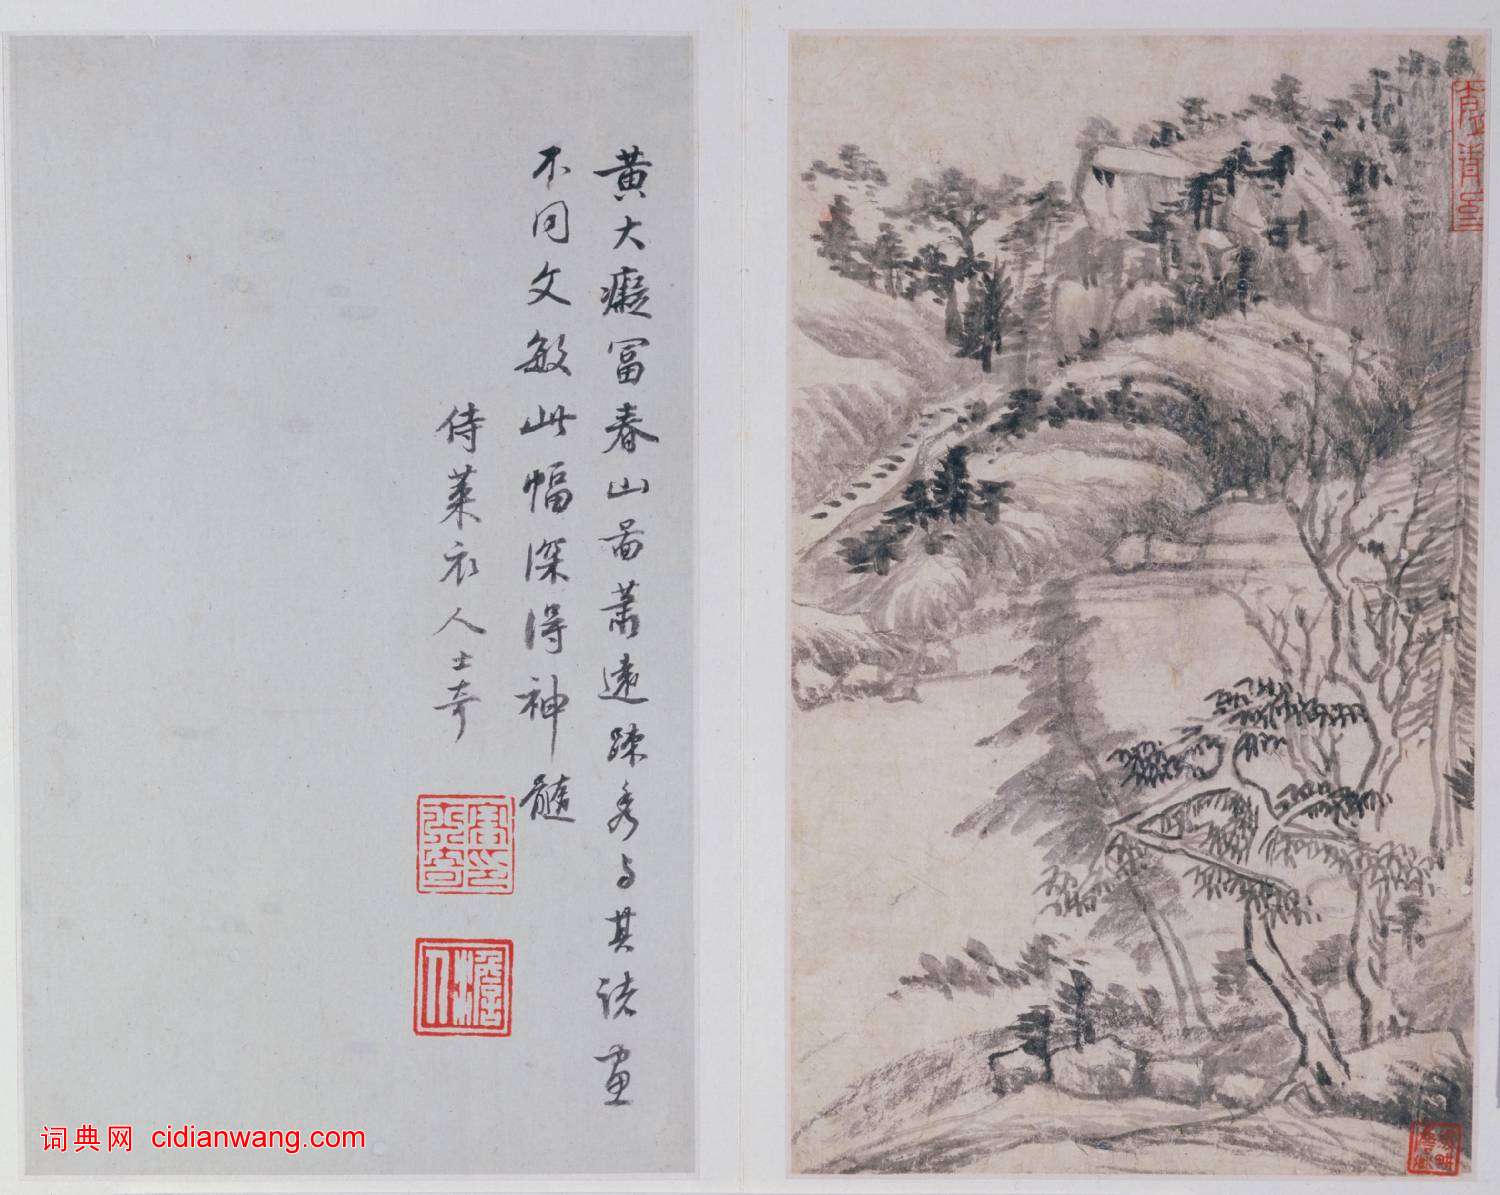 黄大癡冨春山啚蕭遠踈秀与其諸画
不同文敏此幅深得神髓
侍萊衣人士奇
词典网 cidianwang.com